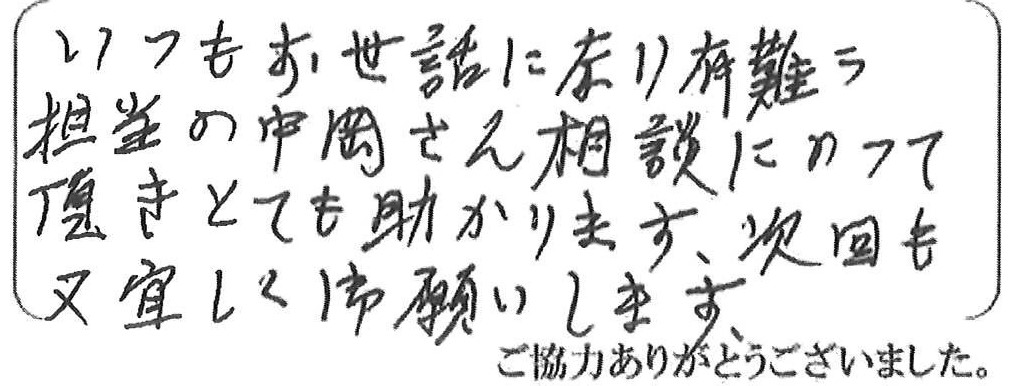 いつもお世話に奈り有難う
担当の中岡さん相談にのって
頂きとても助かります、次回も
又宜しく御願いします、
ご協力ありがとうございました。